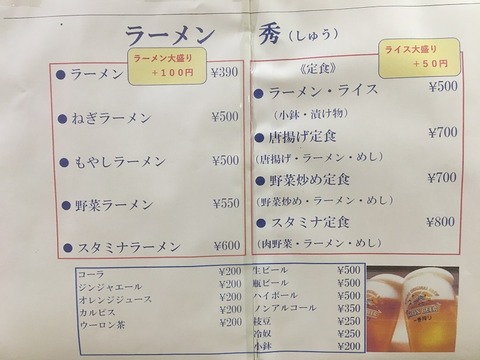 ラーメン 秀(しゅう)
ラーメン大盛り
+100円
● ラーメン ¥390
● ねぎラーメン ¥500
● もやしラーメン ¥500
● 野菜ラーメン ¥550
● スタミナラーメン ¥600
ライス大盛り
+50円
《定食》
● ラーメン・ライス ¥500
(小鉢・漬け物)
● 唐揚げ定食 ¥700
(唐揚げ・ラーメン・めし)
● 野菜炒め定食 ¥700
(野菜炒め・ラーメン・めし)
● スタミナ定食 ¥800
(肉野菜・ラーメン・めし)
コーラ ¥200
ジンジャエール ¥200
オレンジジュース ¥200
カルピス ¥200
ウーロン茶 ¥200
生ビール ¥500
瓶ビール ¥500
ハイボール ¥500
ノンアルコール ¥350
枝豆 ¥250
冷奴 ¥250
小鉢 ¥200